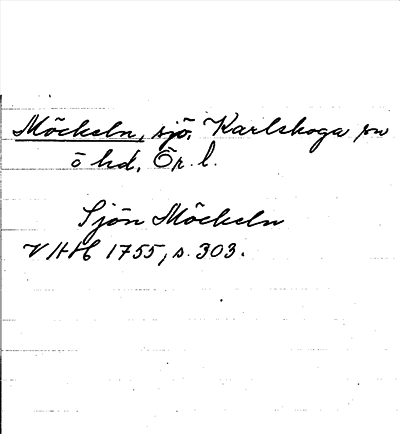 Möckeln, sjö, Karlskoga sn
ö hd, Ör. l.
Sjön Möckeln
VHH 1755, s. 303.